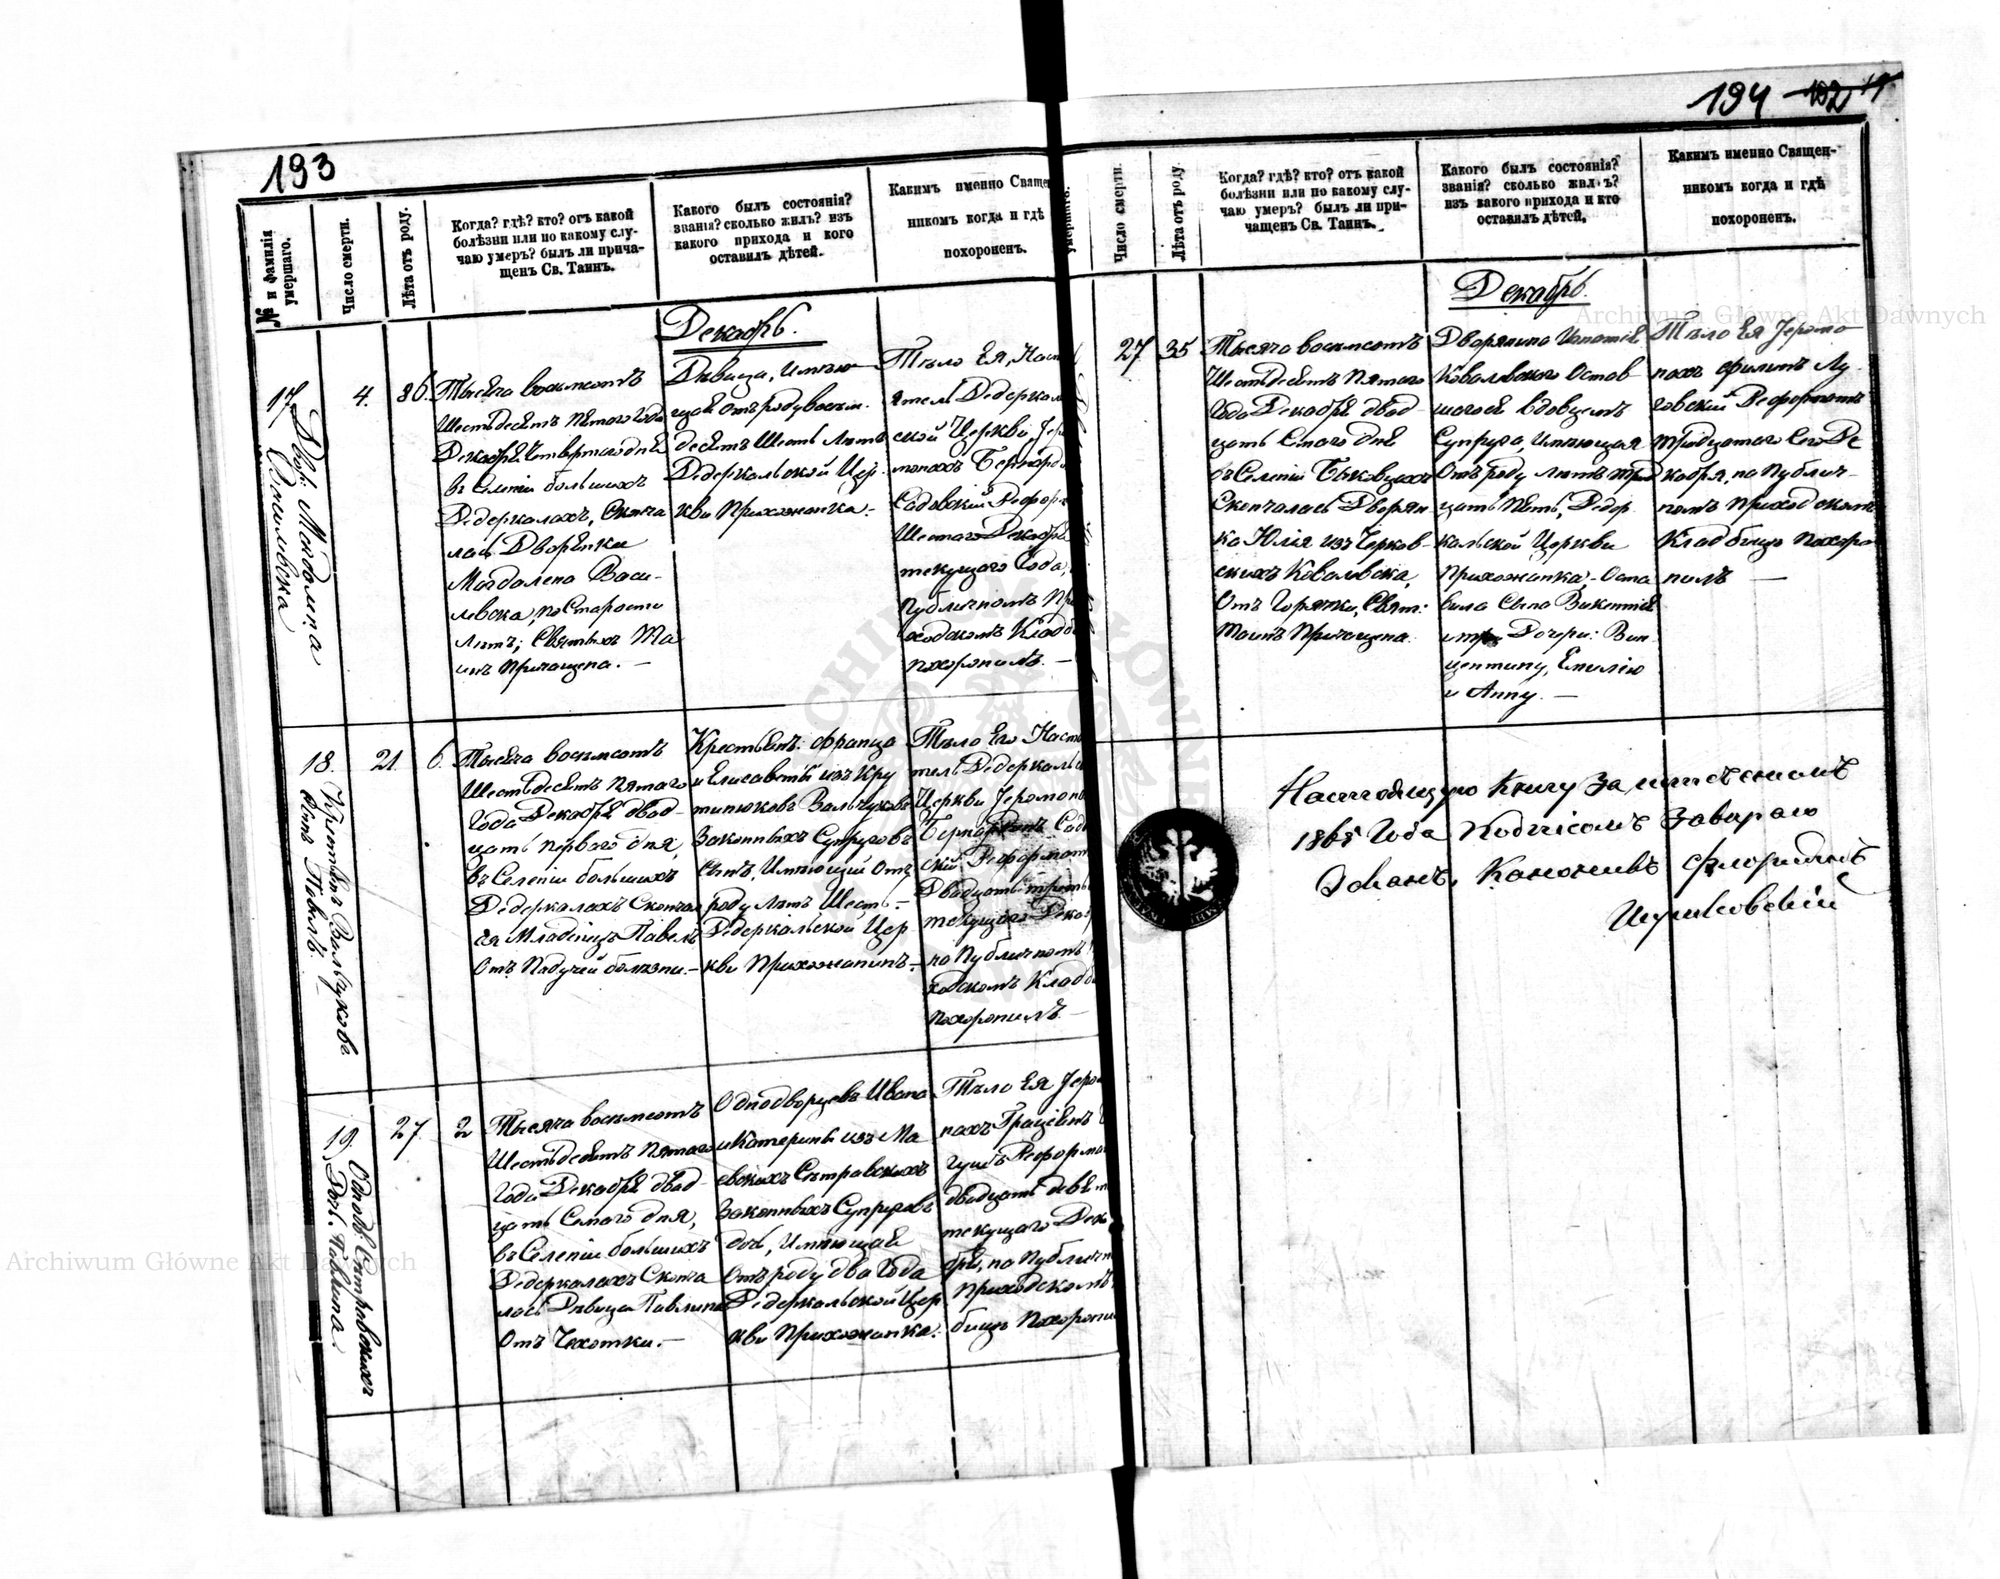 193
№ и фамилія умершаго.
Число смерти.
Лѣта отъ роду.
Когда? гдѣ? кто? отъ какой
болѣзни или по какому слу-
чаю умеръ? былъ ли прича-
щенъ Св. Таинъ.
Какого былъ состоянія?
званія? сколько жилъ? изъ
какого прихода и кого
оставилъ дѣтей.
Какимъ именно Свяще
никомъ когда и гдѣ
похороненъ.
Декабрь.
17.
Двор: Магдалина
Василевска
4.
86.
Тысяча восьмсотъ
Шестьдесятъ Пятаго Года
Декабря Четвертаго дня
въ Селеніи большихъ
Дедеркалахъ, Сконча
лась Дворянка
Магдалена Васи-
левска, по Старости
Лѣтъ; Святыхъ Та
инъ Причащена. —
Дѣвица, Имѣю-
щая Отъ роду восем-
десятъ Шесть Лѣтъ
Дедеркальской Цер-
кви Прихожанка. -
Тѣло Ея, Наст
ятель Дедеркал
ской Церкви, Іер
монахъ Бернард
Садовскій Реформ
Шестаго Декабря
текущаго Года,
Публичномъ Пр
ходскомъ Кладб
похоронилъ. —
18.
Крестьян: Вальчуковъ
сынъ Павелъ.
21.
6.
Тысяча восьмсотъ
Шестьдесятъ Пятаго
Года Декабря двад-
цать перваго дня,
въ Селеніи большихъ
Дедеркалахъ Скончал
ся Младенецъ Павелъ
Отъ Падучей болѣзни. —
Крестьянъ: Франца
и Елисаветы изъ Кру
типюковъ Вальчуковъ
Законныхъ Супруговъ
сынъ, Имѣющій Отъ
роду Лѣтъ Шесть. —
Дедеркальской Цер
кви Прихожанинъ. —
Тѣло Его Наст
тель Дедеркаль
Церкви Іеромона
Бернардинъ Садо
скій Реформат
Двадцать треть
текущаго Декаб
на Публичномъ
ходскомъ Кладб
Похоронилъ —
19.
Однодв: Сѣтравскихъ
Доч. Павлина.
27.
2
Тысяча восьмсотъ
Шестьдесятъ Пятаго
Года Декабря двад-
цать Семаго дня,
въ Селеніи большихъ
Дедеркалахъ Сконча
лась Дѣвица Павлина
Отъ Чахотки. —
Однодворцевъ Ивана
и Катерины изъ Ма
евскихъ Сѣтравскихъ
Законныхъ Супруговъ
дочь, Имѣющая
Отъ роду два Года
Дедеркальской Цер
кви Прихожанка.
Тѣло Ея Іеро
нахъ Граціянъ
Реформа
двадцать девят
текущаго Дека
бря, на Публичн
приходскомъ
бищѣ Похорони
194 182
умершаго.
Число смерти.
Лѣта отъ роду
Когда? гдѣ? кто? отъ какой
болѣзни или по какому слу-
чаю умеръ? былъ ли при-
чащенъ Св. Таинъ.
Какого былъ состоянія?
званія? сколько жилъ?
изъ какого прихода и кто
оставилъ дѣтей.
Какимъ именно Священ-
никомъ когда и гдѣ
похороненъ.
Декабрь.
27
35
Тысяча восьмсотъ
Шестьдесятъ Пятаго
Года Декабря двад-
цать Семаго дня
въ Селеніи Быковцахъ
Скончалась Дворян
ка Юлія изъ Черков-
скихъ Ковалевска,
Отъ Горячки, Свят:
Таинъ Причащена.
Дворянина Игнатія
Ковалевскаго Остав-
шагося вдовцемъ
Супруга, Имѣющая
Отъ роду Лѣтъ трид
цать Пять, Дедер
кальской Церкви
Прихожанка, - Оста
вила Сына Викентія
и три Дочери: Вин-
центину, Емилію
и Анну. —
Тѣло Ея Іеромо-
нахъ Филипъ Лу-
говскій Реформатъ
Тридцатаго Сего Де
кабря, на Публич-
номъ Приходскомъ
Кладбищѣ Похоро
нилъ —
Настоящую Книгу За
1865 Года Подписомъ Заверяю
Каноникъ Флоріянъ
Archiwum Główne Akt Dawnych
Archiwum Główne Akt Dawnych